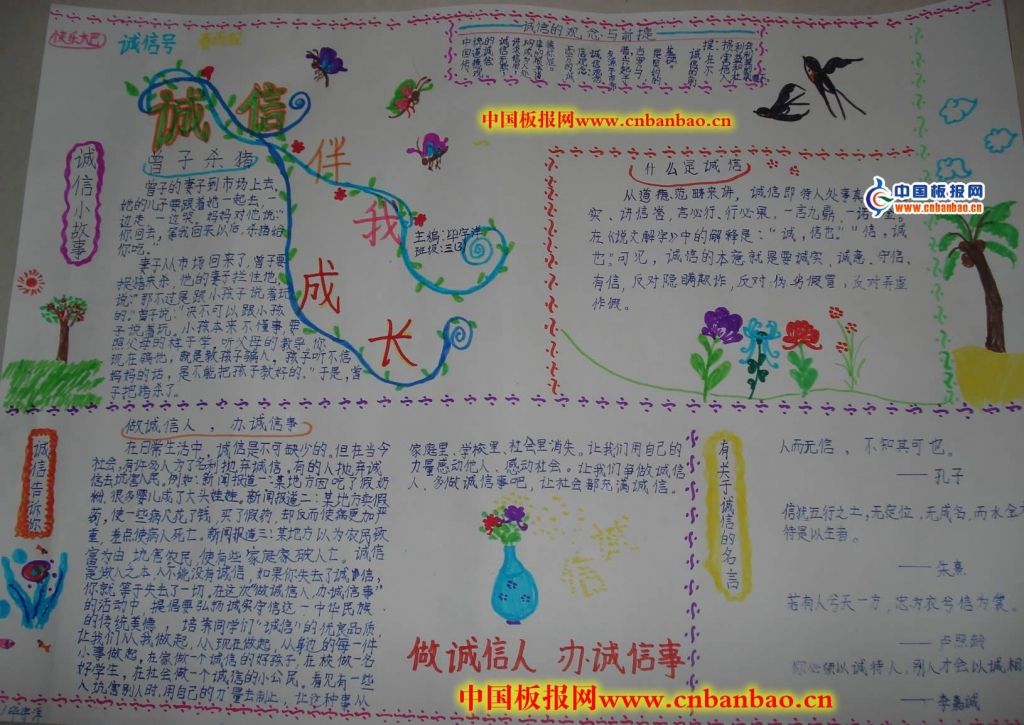 快乐大巴
诚信号
诚信
伴
我
成
长
诚信的观念与前提
中国板报网www.cnbanbao.cn
中国板报网
www.cnbanbao.cn
诚信小故事
曾子杀猪
曾子的妻子到市场上去,
她的儿子要跟着她一起去,一
边走,一边哭。妈妈对他说:“
你回去,等我回来以后,杀猪给
你吃。”
妻子从市场回来了,曾子要
捉猪来杀,他的妻子拦住他
说:“那不过是跟小孩子说着玩
的。”曾子说:“决不可以跟小孩
子说着玩。小孩本来不懂事,要
照父母的样子学,听父母的教导。你
现在骗他,就是教孩子骗人。孩子听不信
妈妈的话,是不能把孩子教好的。”于是,曾
子把猪杀了。
主编:
班级:三(3)
什么是诚信
从道德范畴来讲,诚信即待人处事真
实、讲信誉,言必行、行必果,一言九鼎,一诺
在《说文解字》中的解释是:“诚,信也。”“信,诚
也。”可见,诚信的本意就是要诚实、诚恳、守信、
有信,反对隐瞒欺诈,反对伪劣假冒,反对弄虚
作假。
诚信告诉你
做诚信人,办诚信事
在日常生活中,诚信是不可缺少的。但在当今
社会,有许多人为了名利抛弃诚信。有的人抛弃诚
信去坑害人民。例如:新闻报道一:某地方因吃了假奶
粉,很多婴儿成了大头娃娃。新闻报道二:某地方卖假
药,使一些病人花了钱,买了假药,却反而使病更加严
重,差点使病人死亡。新闻报道三:某地方以为农民致
富为由,坑害农民,使有些家庭家破人亡。诚信
是做人之本,人不能没有诚信,如果你失去了诚信,
你就等于失去了一切。在这次“做诚信人,办诚信事”
的活动中,提倡要弘扬诚实守信这一中华民族
的传统美德,培养同学们“诚信”的优良品质,
让我们从我做起,从现在做起,从身边的每一件
小事做起。在家做一个诚信的好孩子,在校做一名
好学生,在社会做一个诚信的小公民。看见有一些
人坑害别人时,用自己的力量去制止,让这种事从
家庭里、学校里、社会里消失。让我们用自己的
力量感动他人、感动社会。让我们争做诚信
人、多做诚信事吧,让社会都充满诚信。
做诚信人 办诚信事
中国板报网www.cnbanbao.cn
有关于诚信的名言
人而无信,不知其可也。
——孔子
信犹五行之土,无定位,无成名,而水金木
待是以生者。
——朱熹
若有人兮天一方,忠为衣兮信为裳。
——卢照龄
你必须以诚待人,别人才会以诚相
——李嘉诚